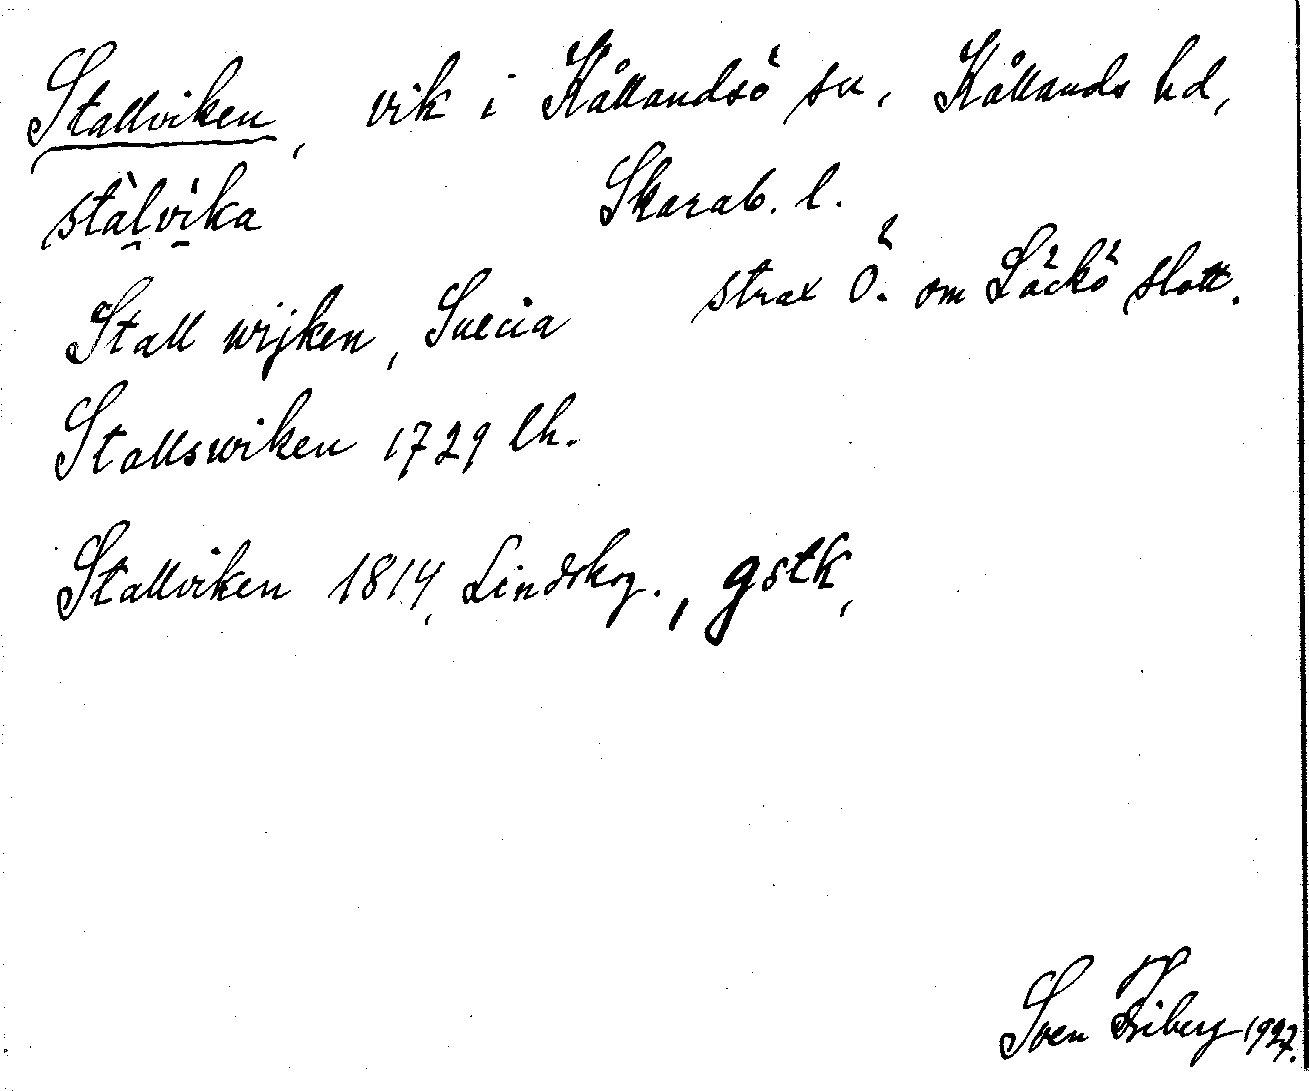 Stallviken, vik i Kållandsö sn, Kållands hd,
stàlvìka
Skarab. l.
strax Ö. om Läckö slott.
Stall wijken, Suecia
Stallswiken 1729 lh.
Stallviken 1814, Lindskog., gstk,
Sven Friberg 1927.